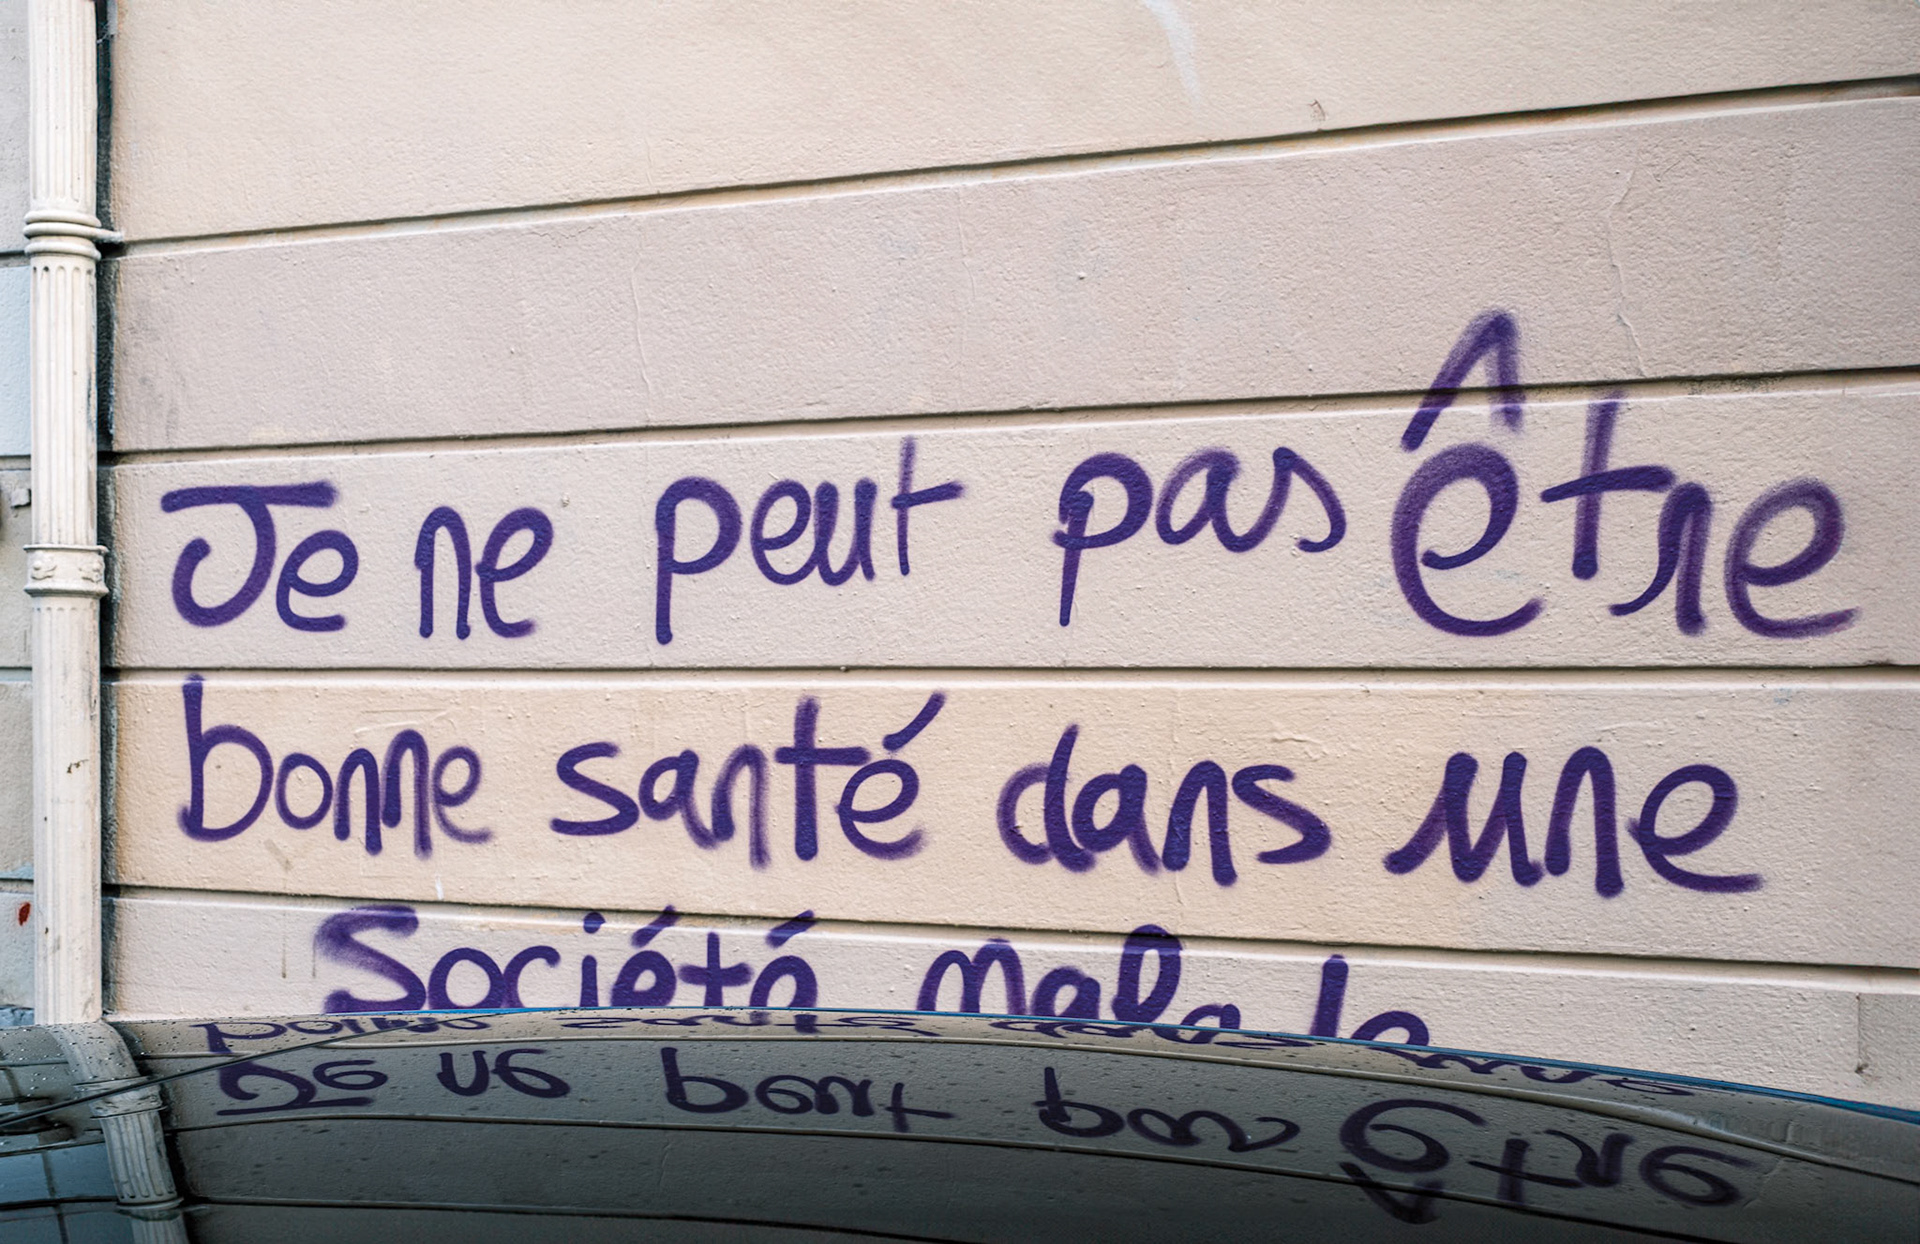 Je ne peut pas être
bonne santé dans une
Société Malade